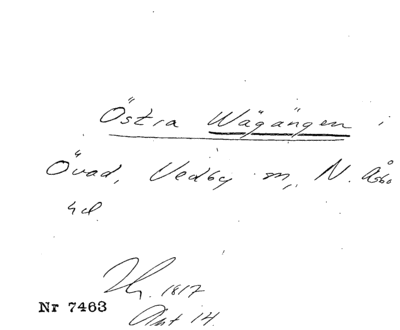 Östra Wägången i
Övad, Vedby m, N. Åsbo
hd
Hr. 1817
Akt 14.
Nr 7463